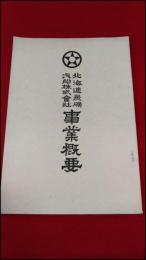 北海道炭礦
汽船株式會社
事業概要